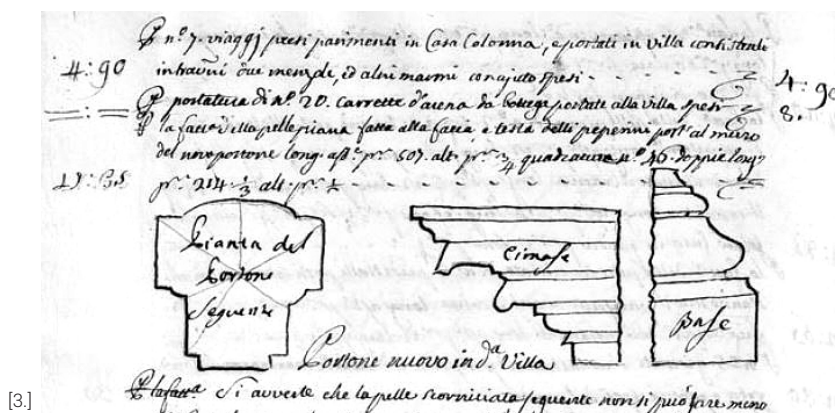 P n.º 7. viaggj presi parimenti in Casa Colonna, e portati in Villa con
4:90 4:90
due , ed altri marmi con ajuto spesi
P portatura di Nº. 20. Carrette d'arena da bottega portate alla Villa spesi
8.
P la fatt.ª della pelle piana fatta alla faccia e testa delli peperini al muro
del novo portone long. pr. 507. alt. pr. 3/4 quadrature nº 46. doppie long.
pr. 214 1/2 alt. pr.
Pianta del
Portone
Seguente
Cimase
Base
Portone nuovo in d.ª Villa
P la fatt.ª Si avverte che la pelle scorniciata seguente non si può fare meno
[3.]